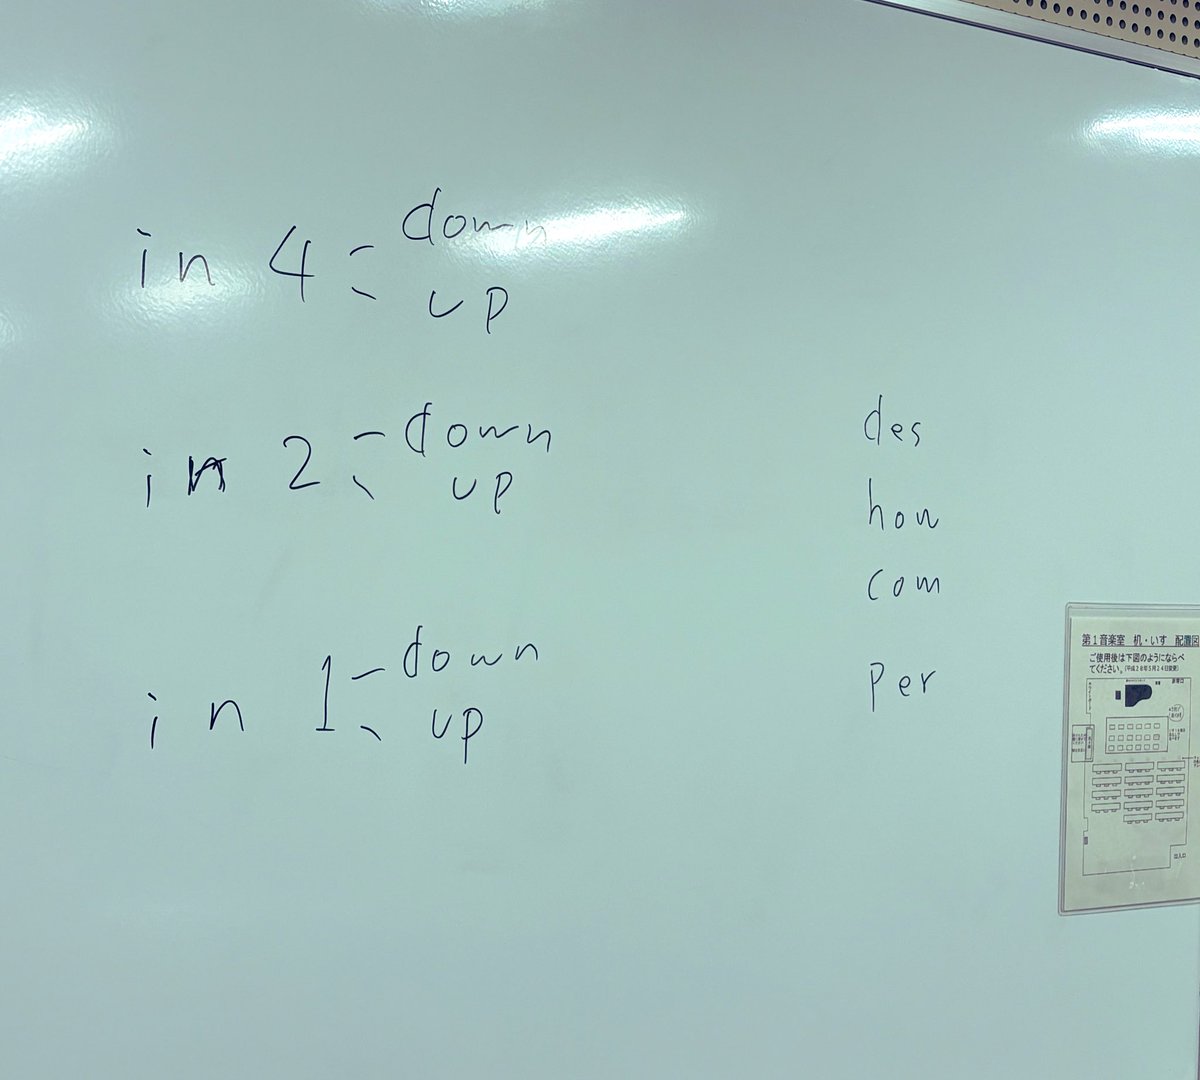 in 4 down
up
in 2 down
up
in 1 down
up
des
how
com
per
第1音楽室 机・いす 配置図
ご使用後は下図のようにならべ
てください。(平成28年5月24日変更)
出入口